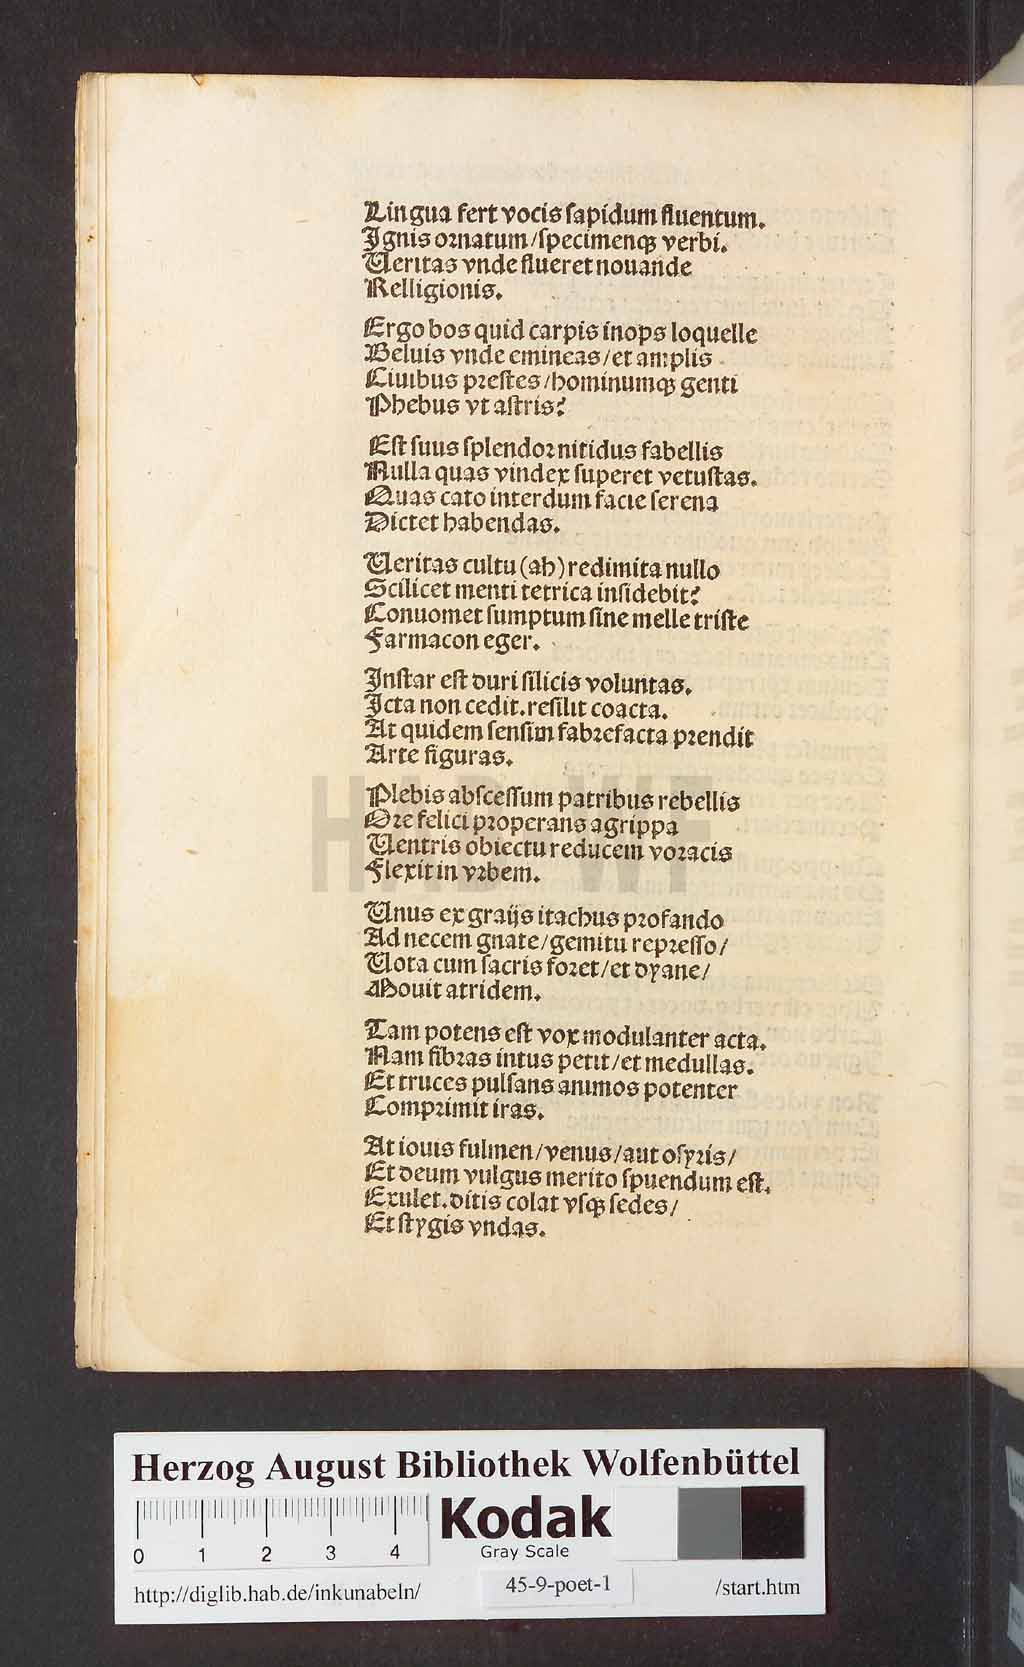 Lingua fert vocis ſapidum fluentum.
Ignis ornatum/ſpecimenqꝫ verbi.
Ueritas vnde flueret nouande
Relligionis.
Ergo bos quid carpis inops loquelle
Beluis vnde emineas/et amplis
Ciuibus preſtes/hominumqꝫ genti
Phebus vt aſtris?
Eſt ſuus ſplendor nitidus fabellis
Nulla quas vindex ſuperet vetuſtas.
Quas cato interdum facie ſerena
Dictet habendas.
Ueritas cultu (ah) redimita nullo
Scilicet menti tetrica inſidebit?
Conuomet ſumptum ſine melle triſte
Farmacon eger.
Inſtar eſt duri ſilicis voluntas.
Icta non cedit.reſilit coacta.
At quidem ſenſim fabrefacta prendit
Arte figuras.
Plebis abſceſſum patribus rebellis
Ore felici properans agrippa
Uentris obiectu reducem voracis
Flexit in vrbem.
Unus ex graijs itachus profando
Ad necem gnate/gemitu repreſſo/
Uota cum ſacris foret/et dyane/
Mouit atridem.
Tam potens eſt vox modulanter acta.
Nam fibras intus petit/et medullas.
Et truces pulſans animos potenter
Comprimit iras.
At iouis fulmen/venus/aut oſyris/
Et deum vulgus merito ſpuendum eſt.
Exulet.ditis colat vſqꝫ ſedes/
Et ſtygis vndas.
HAB WF
Herzog August Bibliothek Wolfenbüttel
0 1 2 3 4
Kodak
Gray Scale
http://diglib.hab.de/inkunabeln/ 45-9-poet-1 /start.htm